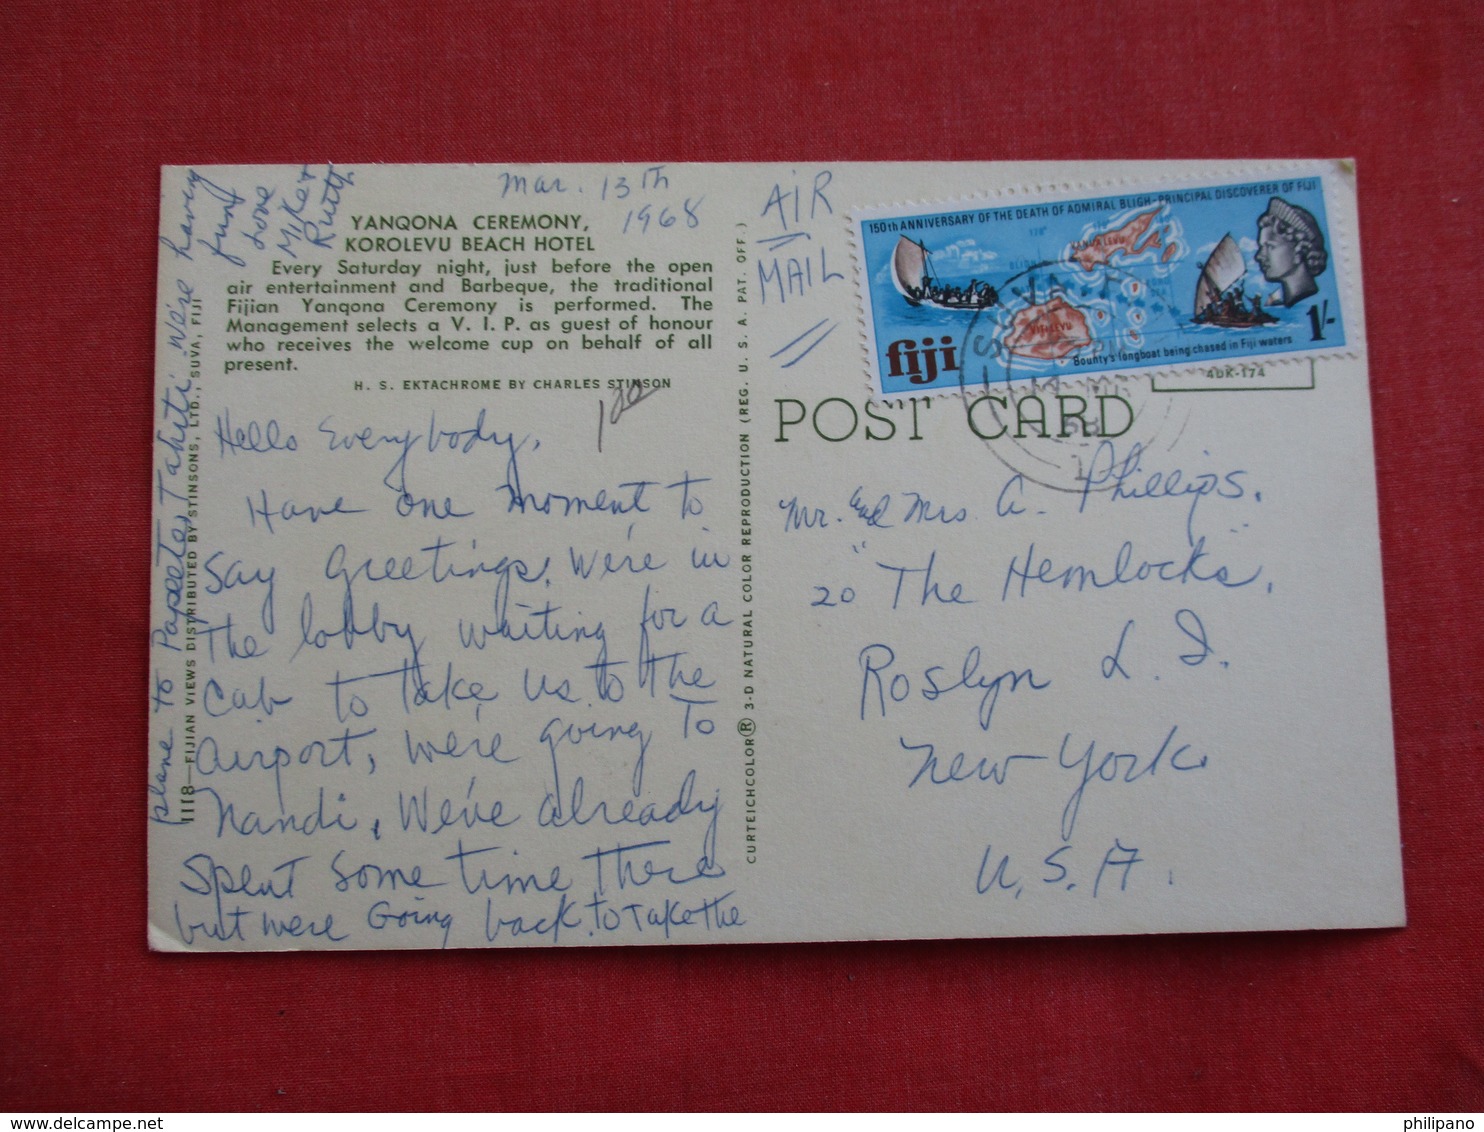 Mar. 13th
1968
AIR
MAIL
YANQONA CEREMONY,
KOROLEVU BEACH HOTEL
Every Saturday night, just before the open
air entertainment and Barbeque, the traditional
Fijian Yanqona Ceremony is performed. The
Management selects a V. I. P. as guest of honour
who receives the welcome cup on behalf of all
present.
H. S. EKTACHROME BY CHARLES STINSON
Hello Everybody,
Have one moment to
say Greetings. We're in
the lobby waiting for a
cab to take us to the
airport, we're going to
Nandi. We've already
spent some time there
but were Going back to take the
plane to Papeete, Tahiti. We're having
fun
Love
Mike +
Ruth
1118—FIJIAN VIEWS DISTRIBUTED BY STINSONS, LTD., SUVA, FIJI
CURTEICHCOLOR® 3-D NATURAL COLOR REPRODUCTION (REG. U. S. A. PAT. OFF.)
150th ANNIVERSARY OF THE DEATH OF ADMIRAL BLIGH-PRINCIPAL DISCOVERER OF FIJI
VANUA LEVU
VITI LEVU
fiji
Bounty's longboat being chased in Fiji waters
1/-
4DK-174
POST CARD
Mr. and Mrs A. Phillips.
20 "The Hemlocks".
Roslyn L. I.
New York.
U. S. A.
philipano